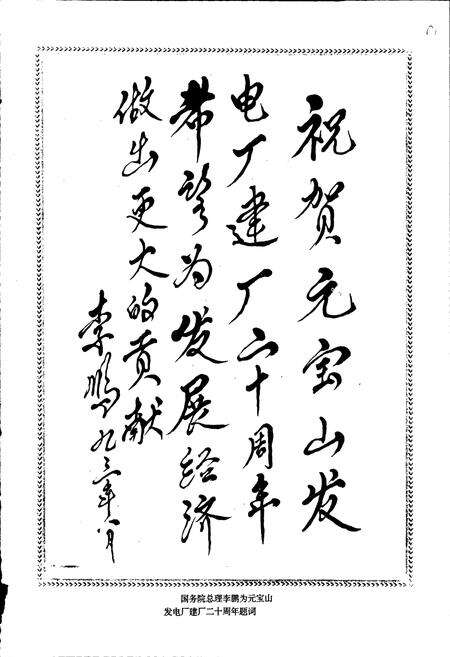 祝贺元宝山发
电厂建厂二十周年
希望为发展经济
做出更大的贡献
李鹏
九三年八月
国务院总理李鹏为元宝山
发电厂建厂二十周年题词